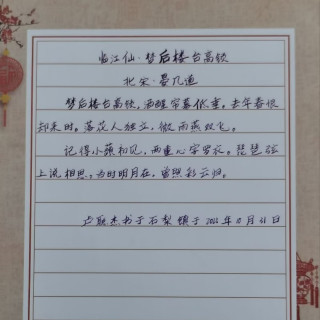 临江仙·梦后楼台高锁
北宋·晏几道
梦后楼台高锁,酒醒帘幕低垂。去年春恨
却来时。落花人独立,微雨燕双飞。
记得小蘋初见,两重心字罗衣。琵琶弦
上说相思。当时明月在,曾照彩云归。
书于石梨镇于2022年11月